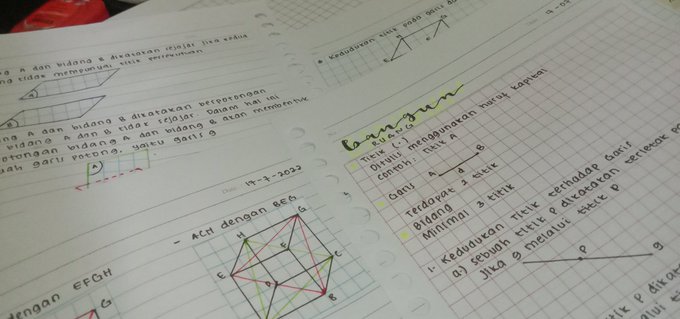 A dan bidang B dikatakan sejajar jika kedua
tidak mempunyai titik persekutuan
A
B
A dan bidang B dikatakan berpotongan
bidang A dan B tidak sejajar. Dalam hal ini
potongan bidang A dan bidang B akan membentuk
garis potong, yaitu garis g
A
Date
17-7-2022
- ACH dengan BEG
H
G
E
F
E
C
A
B
dengan EFGH
G
• Kedudukan titik pada garis
Date
17-07
Bangun
RUANG
Titik (.)
Ditulis menggunakan huruf kapital
contoh: titik A
Garis
A
B
d
Terdapat 2 titik
Bidang
Minimal 3 titik
1. Kedudukan Titik terhadap Garis
a.) sebuah titik P dikatakan terletak
Jika g melalui titik P
P
g
titik P
titik